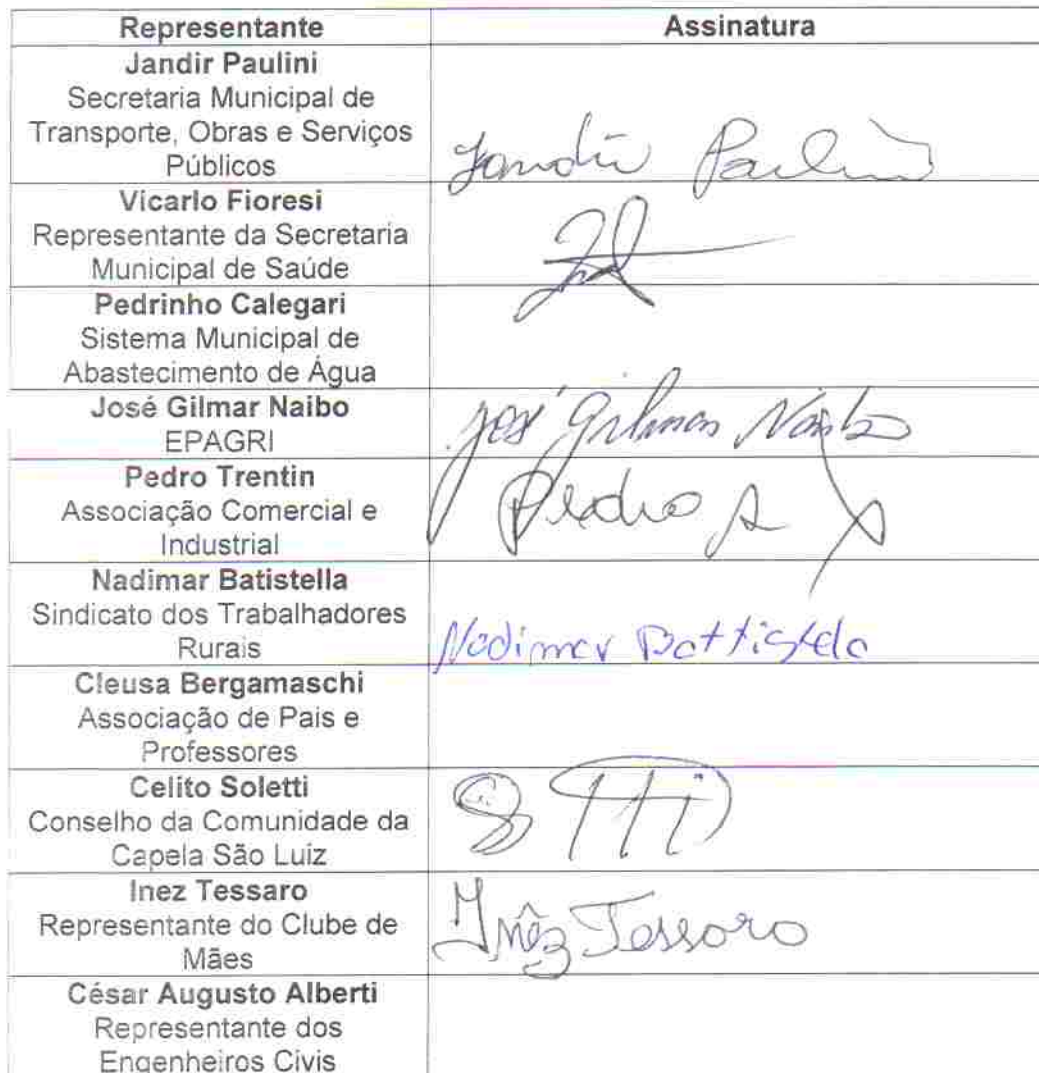 Representante Assinatura
Jandir Paulini
Secretaria Municipal de
Transporte, Obras e Serviços
Públicos
Jandir Paulini
Vicarlo Fioresi
Representante da Secretaria
Municipal de Saúde
Pedrinho Calegari
Sistema Municipal de
Abastecimento de Água
José Gilmar Naibo
EPAGRI
José Gilmar Naibo
Pedro Trentin
Associação Comercial e
Industrial
Pedro
Nadimar Batistella
Sindicato dos Trabalhadores
Rurais
Nadimar Battistela
Cleusa Bergamaschi
Associação de Pais e
Professores
Celito Soletti
Conselho da Comunidade da
Capela São Luiz
Inez Tessaro
Representante do Clube de
Mães
Inêz Tessaro
César Augusto Alberti
Representante dos
Engenheiros Civis